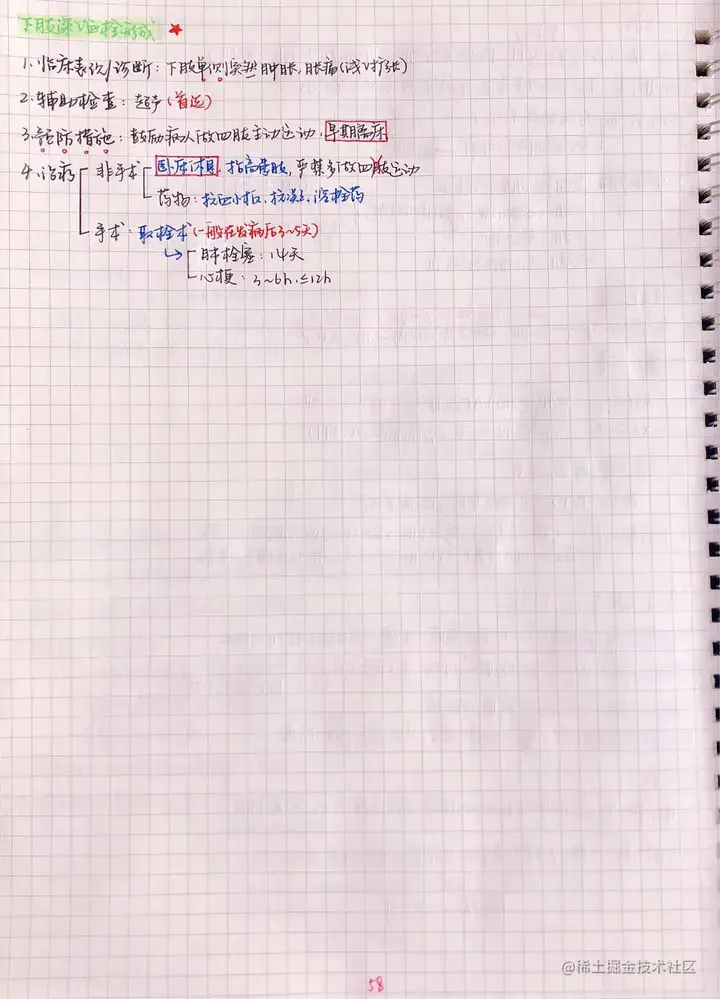 下肢深V血栓形成 ★
1.临床表现/诊断:下肢单侧突然肿胀,胀痛(浅V扩张)
2.辅助检查:超声(首选)
3.预防措施:鼓励病人做四肢主动运动,早期离床
4.治疗 非手术 卧床休息,抬高患肢,严禁多做四肢运动
药物:抗血小板、抗凝、溶栓药
手术:取栓术(一般在发病后3~5天)
肺栓塞:14天
心梗:3~6h,≤12h
58
@稀土掘金技术社区